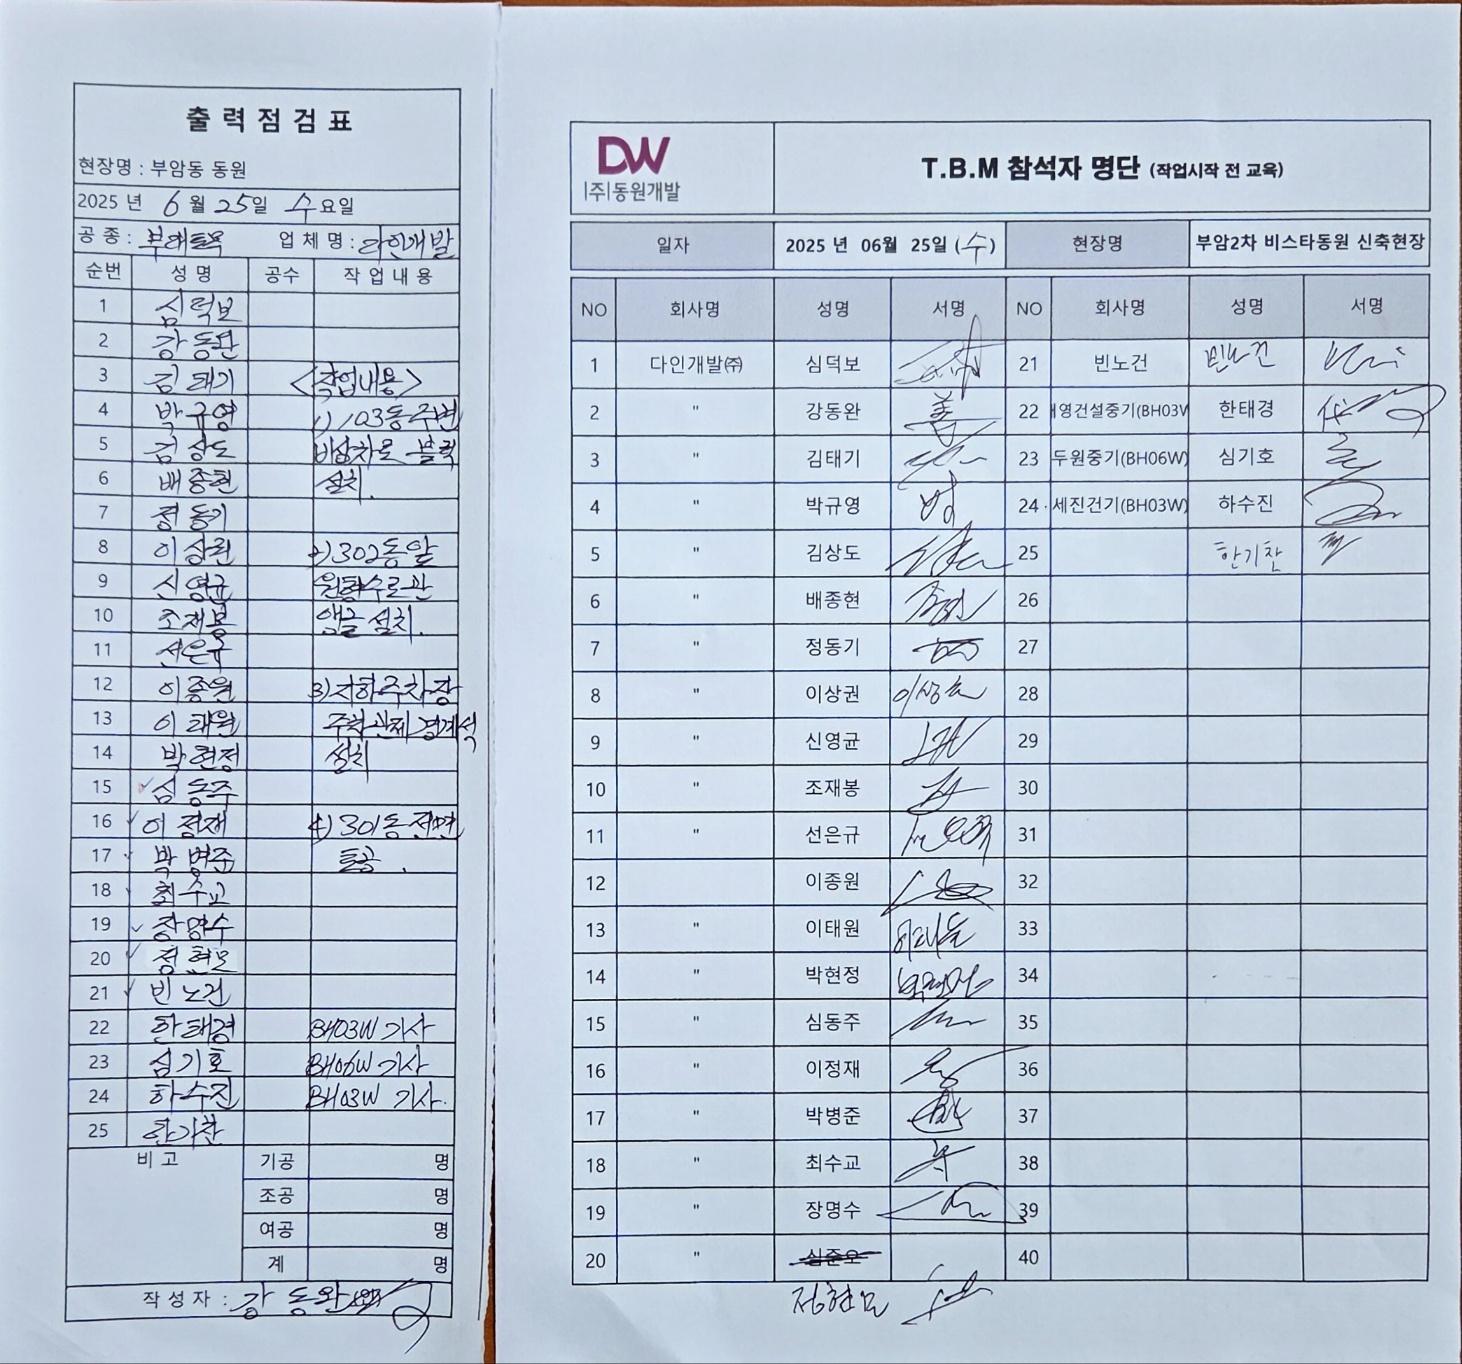 출력점검표
현장명 : 부암동 동원
2025 년 6 월 25일 수요일
공 종 : 부대토목 업 체 명 : 다인개발
순번 성 명 공수 작 업 내 용
1 심덕보
2 강동완
3 김태기 <작업내용>
4 박규영 1) 103동 주변
5 김상도 비상차로 블럭
6 배종현 설치.
7 정동기
8 이상권 2) 302동 앞
9 신영균 원형수로관
10 조재봉 앵글 설치.
11 선은규
12 이종원 3) 지하주차장
13 이태원 주차관제 경계석
14 박현정 설치
15 심동주
16 이정재 4) 301동 전면
17 박병준 토공.
18 최수교
19 장명수
20 정현모
21 빈노건
22 한태경 BH03W 기사
23 심기호 BH06W 기사
24 하수진 BH03W 기사.
25 한기찬
비 고 기공 명
조공 명
여공 명
계 명
작 성 자 : 강동완
DW
|주|동원개발
T.B.M 참석자 명단 (작업시작 전 교육)
일자 2025 년 06월 25일 (수) 현장명 부암2차 비스타동원 신축현장
NO 회사명 성명 서명 NO 회사명 성명 서명
1 다인개발㈜ 심덕보 21 빈노건 빈노건
2 " 강동완 22 영건설중기(BH03W 한태경
3 " 김태기 23 두원중기(BH06W) 심기호
4 " 박규영 24 세진건기(BH03W) 하수진
5 " 김상도 25 한기찬
6 " 배종현 26
7 " 정동기 27
8 " 이상권 28
9 " 신영균 29
10 " 조재봉 30
11 " 선은규 31
12 " 이종원 32
13 " 이태원 이태원 33
14 " 박현정 박현정 34
15 " 심동주 35
16 " 이정재 36
17 " 박병준 37
18 " 최수교 38
19 " 장명수 39
20 " 심준오 40
정현모